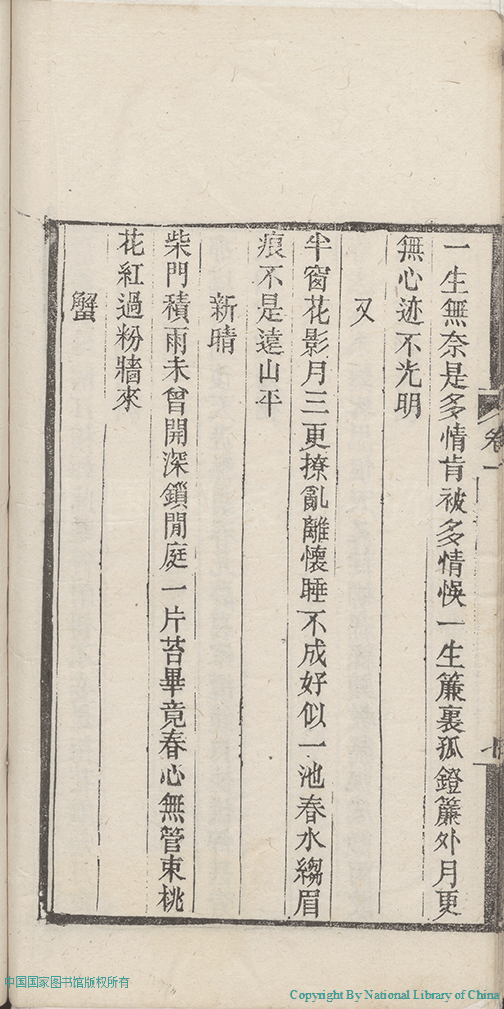 卷一
一生無奈是多情肯被多情悞一生簾裏孤鐙簾外月更
無心迹不光明
又
半窗花影月三更撩亂離懷睡不成好似一池春水縐眉
痕不是遠山平
新晴
柴門積雨未曾開深鎖閒庭一片苔畢竟春心無管束桃
花紅過粉牆來
蟹
中国国家图书馆版权所有
Copyright By National Library of China